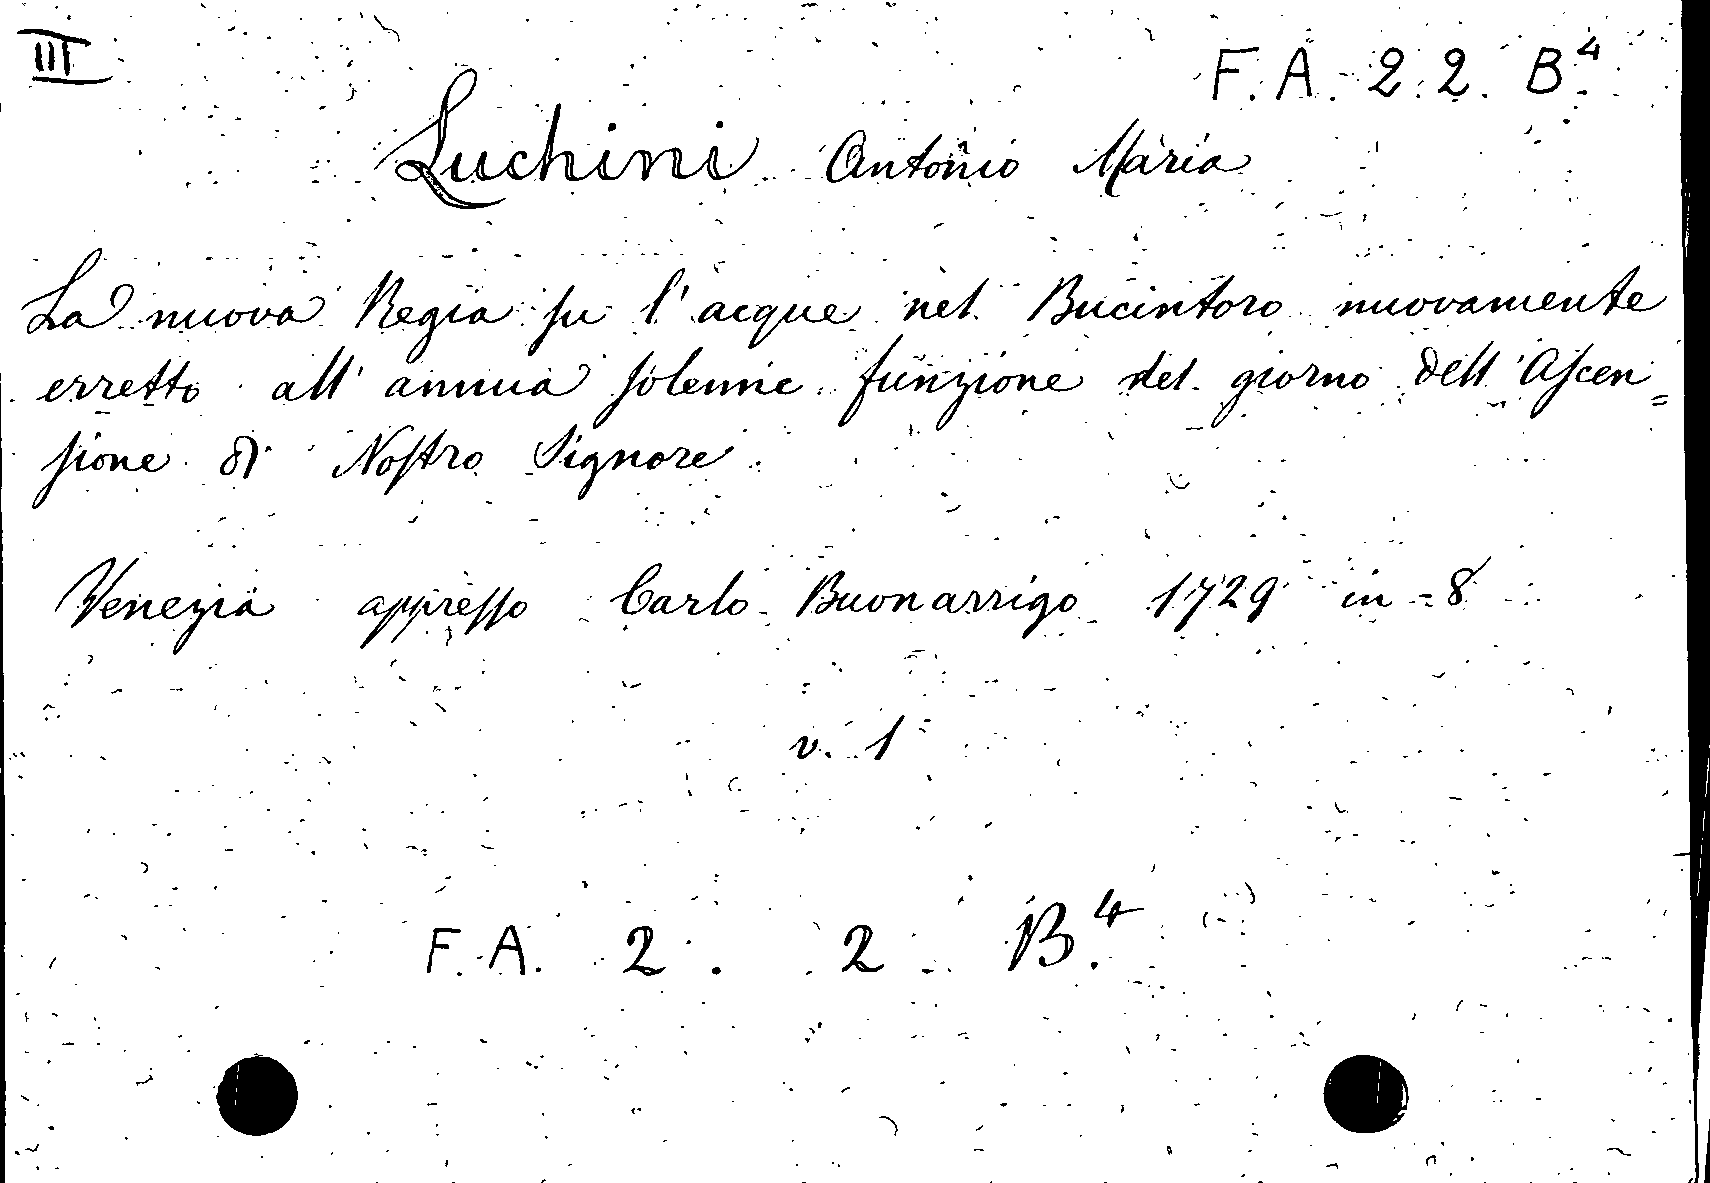 III
F. A. 2. 2. B.⁴
Luchini Antonio Maria
La nuova Regia su l'acque nel Bucintoro nuovamente
erretto all' annua solenne funzione del giorno dell'Ascen=
sione di Nostro Signore.
Venezia appresso Carlo Buonarrigo 1729 in-8
v. 1
F. A. 2. 2. B.⁴